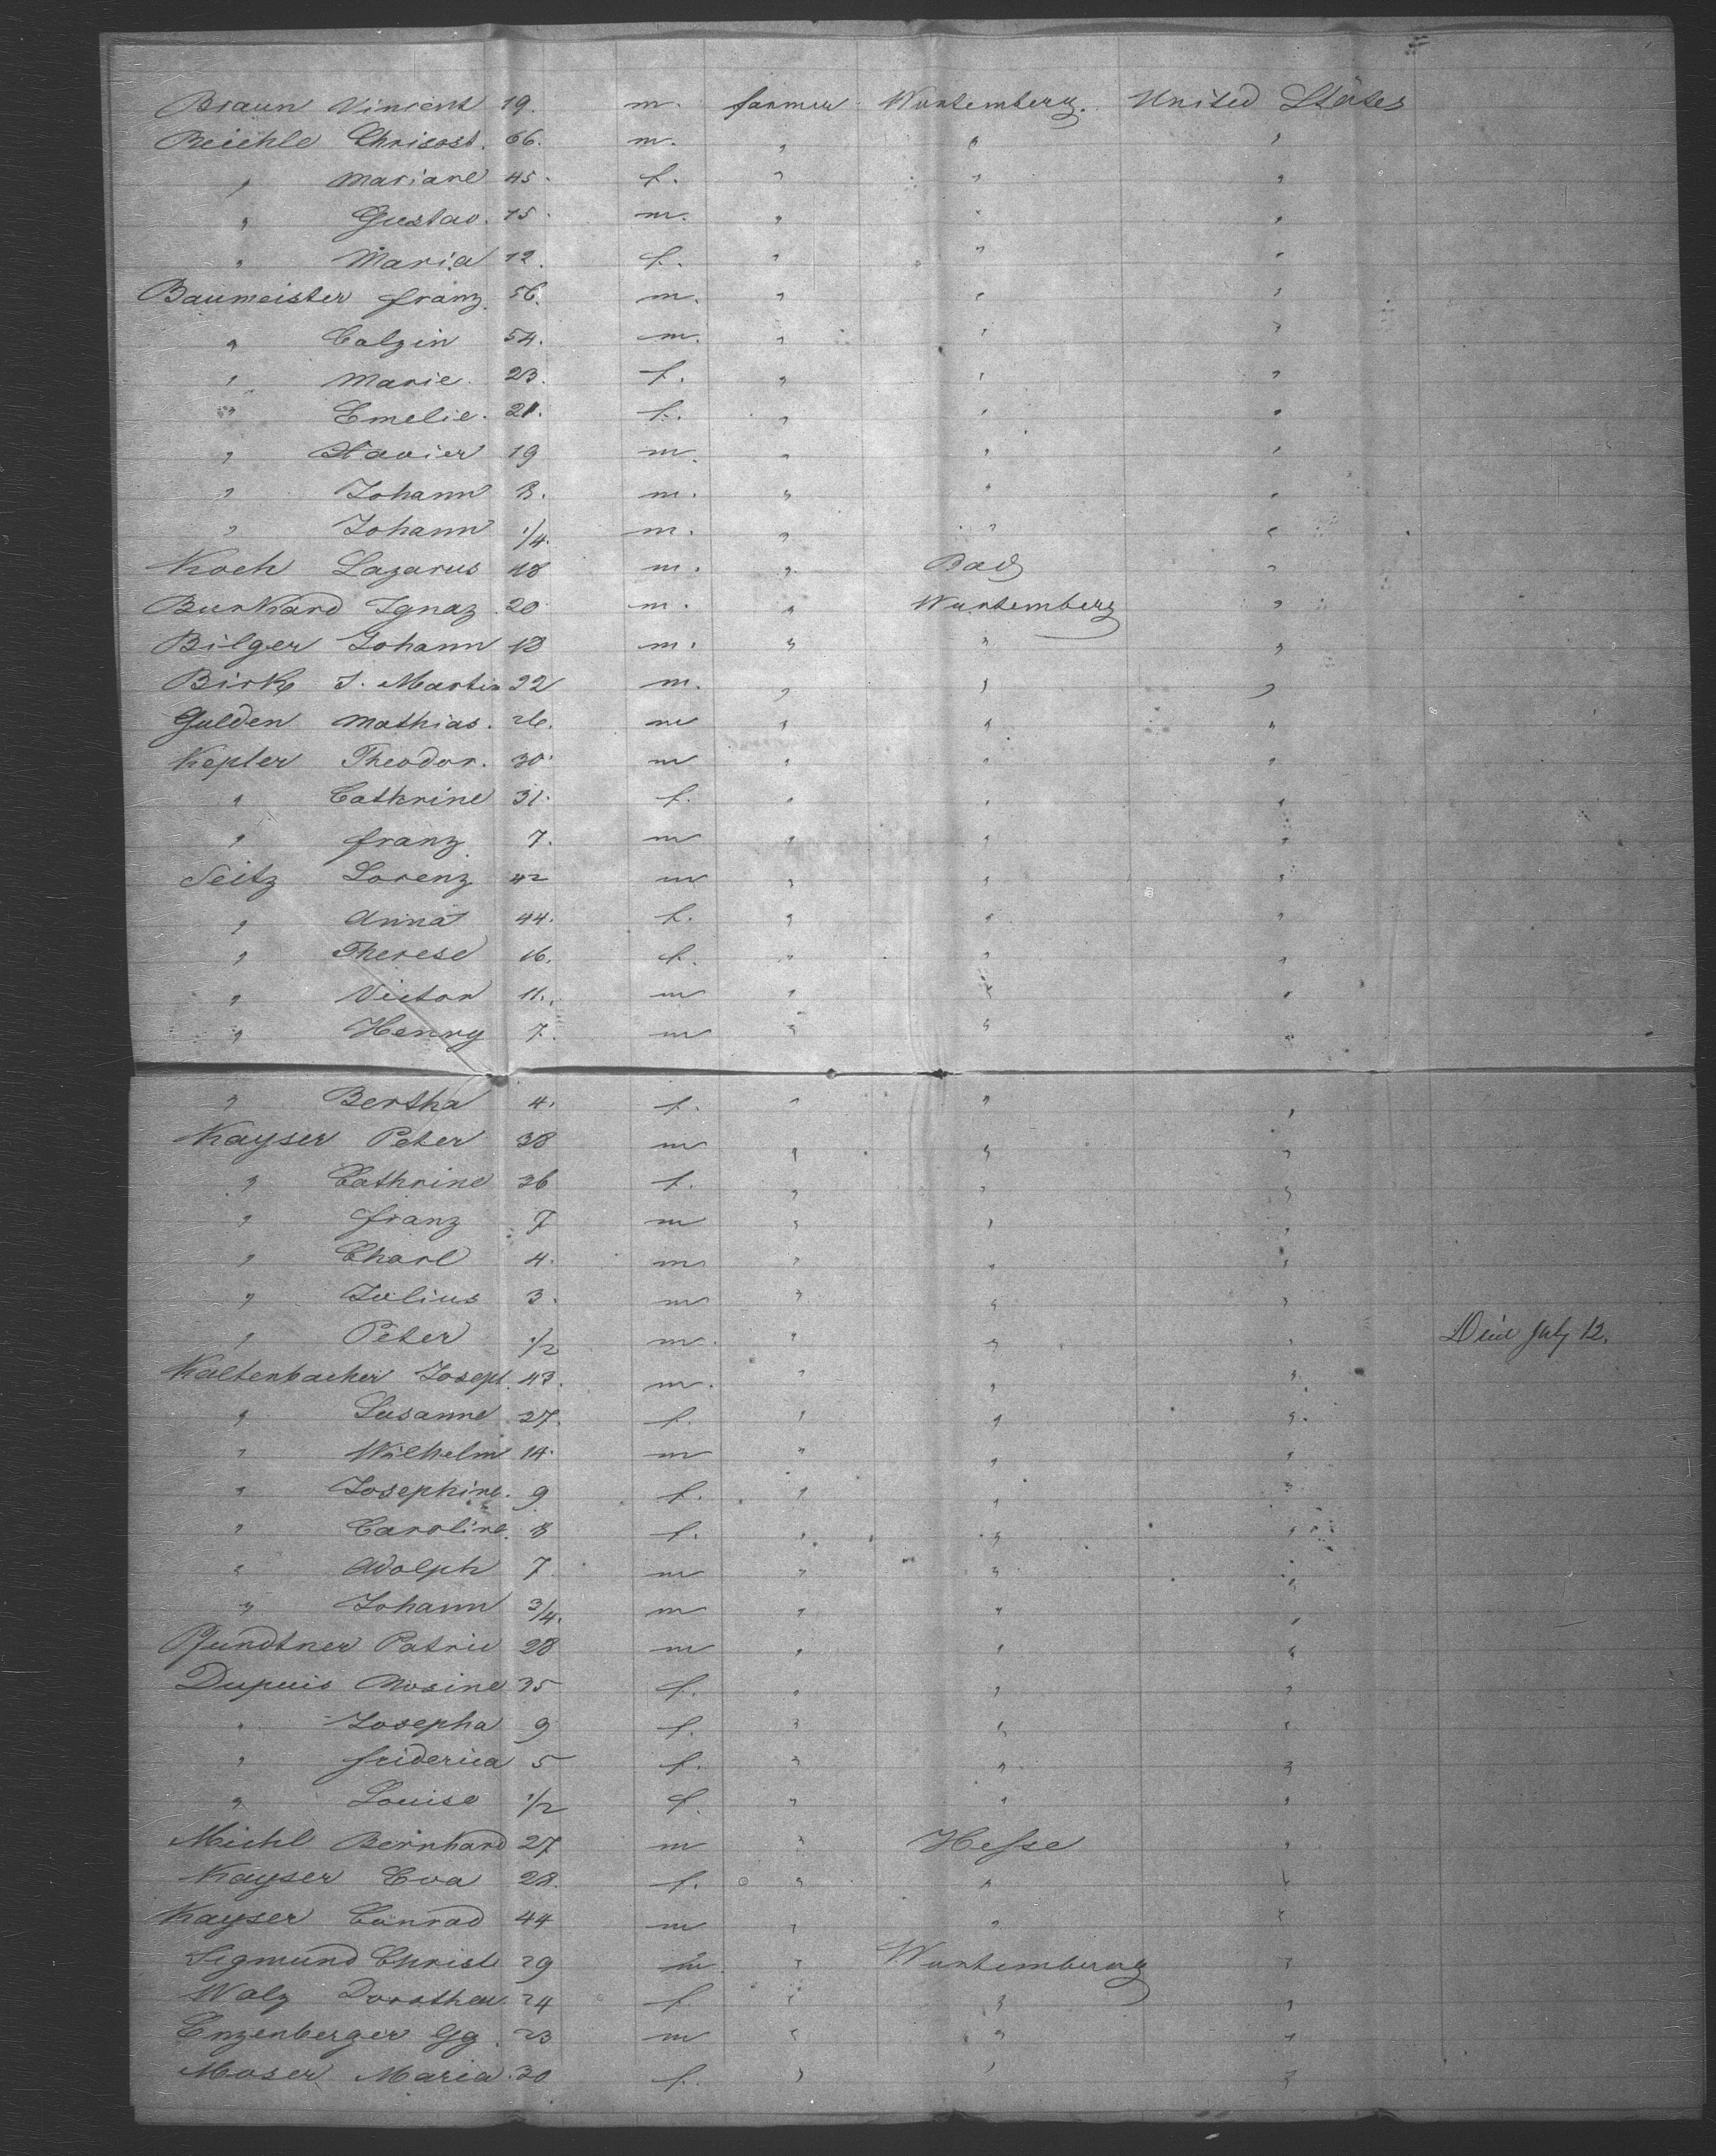 Braun Vincent 19. m. farmer Wurtemberg. United States
Reichle Chrisost. 66. m. " " "
" Mariane 45. f. " " "
" Gustav. 15. m. " " "
" Maria 12. f. " " "
Baumeister franz. 56. m. " " "
" Calzin 54. m. " " "
" Marie. 23. f. " " "
" Emelie. 21. f. " " "
" Xavier 19 m. " " "
" Johann 3. m. " " "
" Johann 1/4. m. " " "
Koch Lazarus 48 m. " Bad "
Burkhard Ignaz. 20 m. " Wurtemberg "
Bilger Johann 18 m. " " "
Birk J. Martin 22 m. " " "
Gulden Mathias. 26. m " " "
Kepler Theodor. 30. m " " "
" Cathrine 31. f. " " "
" franz 7. m " " "
Seitz Lorenz 42 m " " "
" Anna 44. f. " " "
" Therese 16. f. " " "
" Victor 11. m " " "
" Henry 7. m " " "
" Bertha 4. f. " " "
Kayser Peter 38 m " " "
" Cathrine 36 f. " " "
" franz 7 m " " "
" Charl 4. m " " "
" Julius 3. m " " "
" Peter 1/2 m. " " " Died July 12.
Kaltenbacher Joseph. 43. m. " " "
" Susanne 27. f. " " "
" Wilhelm 14. m " " "
" Josephine. 9 f. " " "
" Caroline. 8 f. " " "
" Adolph 7. m " " "
" Johann 3/4. m " " "
Pfundtner Patric 28 m " " "
Dupuis Rosine 35 f. " " "
" Josepha 9 f. " " "
" friderica 5 f. " " "
" Louise 1/2 f. " " "
Michl Bernhard 27 m " Hesse "
Kayser Eva 28. f. " " "
Kayser Conrad 44 m " " "
Sigmund Christ 29 m. " Wurtemberg "
Walz Dorothea. 24 f. " " "
Enzenberger Gg. 23 m " " "
Moser Maria. 30 f. " " "